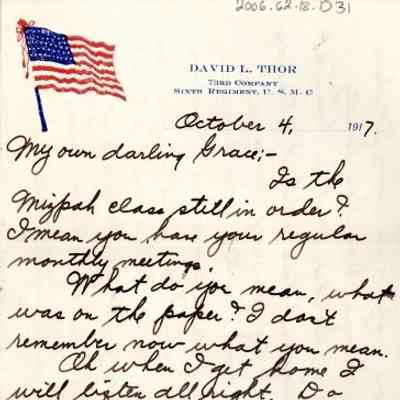 2006.62.18.D31
DAVID L. THOR
73RD COMPANY
SIXTH REGIMENT, U. S. M. C
October 4, 1917.
My own darling Grace;-
Is the
Mizpah class still in order?
I mean you have your regular
monthly meetings.
What do you mean, what
was on the paper? I don't
remember now what you mean.
Oh when I get home I
will listen all right. Do